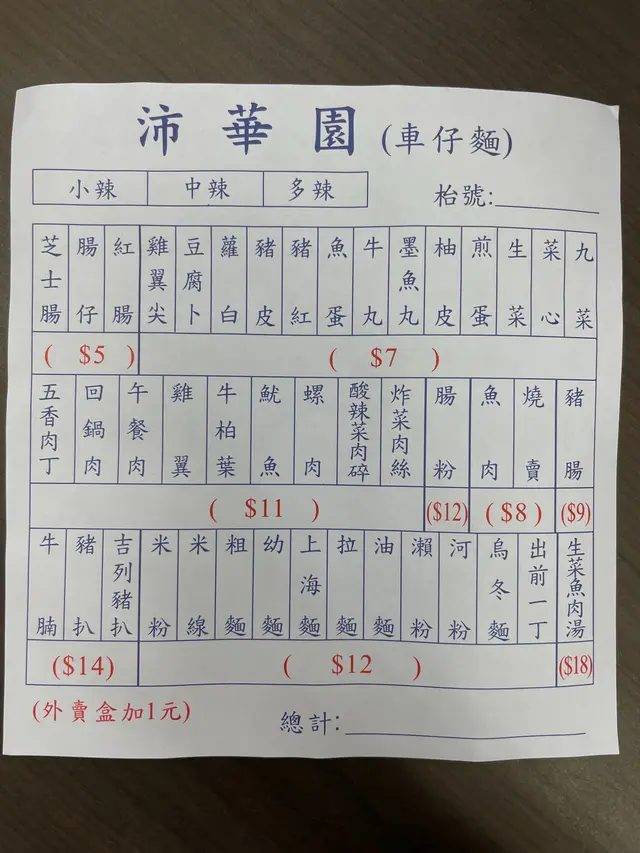 沛華園(車仔麵)
小辣 中辣 多辣 枱號:
芝士腸 腸仔 紅腸 雞翼尖 豆腐卜 蘿白 豬皮 豬紅 魚蛋 牛丸 墨魚丸 柚皮 煎蛋 生菜 菜心 九菜
( $5 ) ( $7 )
五香肉丁 回鍋肉 午餐肉 雞翼 牛柏葉 魷魚 螺肉 酸辣菜肉碎 炸菜肉絲 腸粉 魚肉 燒賣 豬腸
( $11 ) ($12) ( $8 ) ($9)
牛腩 豬扒 吉列豬扒 米粉 米線 粗麵 幼麵 上海麵 拉麵 油麵 瀨粉 河粉 烏冬麵 出前一丁 生菜魚肉湯
($14) ( $12 ) ($18)
(外賣盒加1元) 總計: